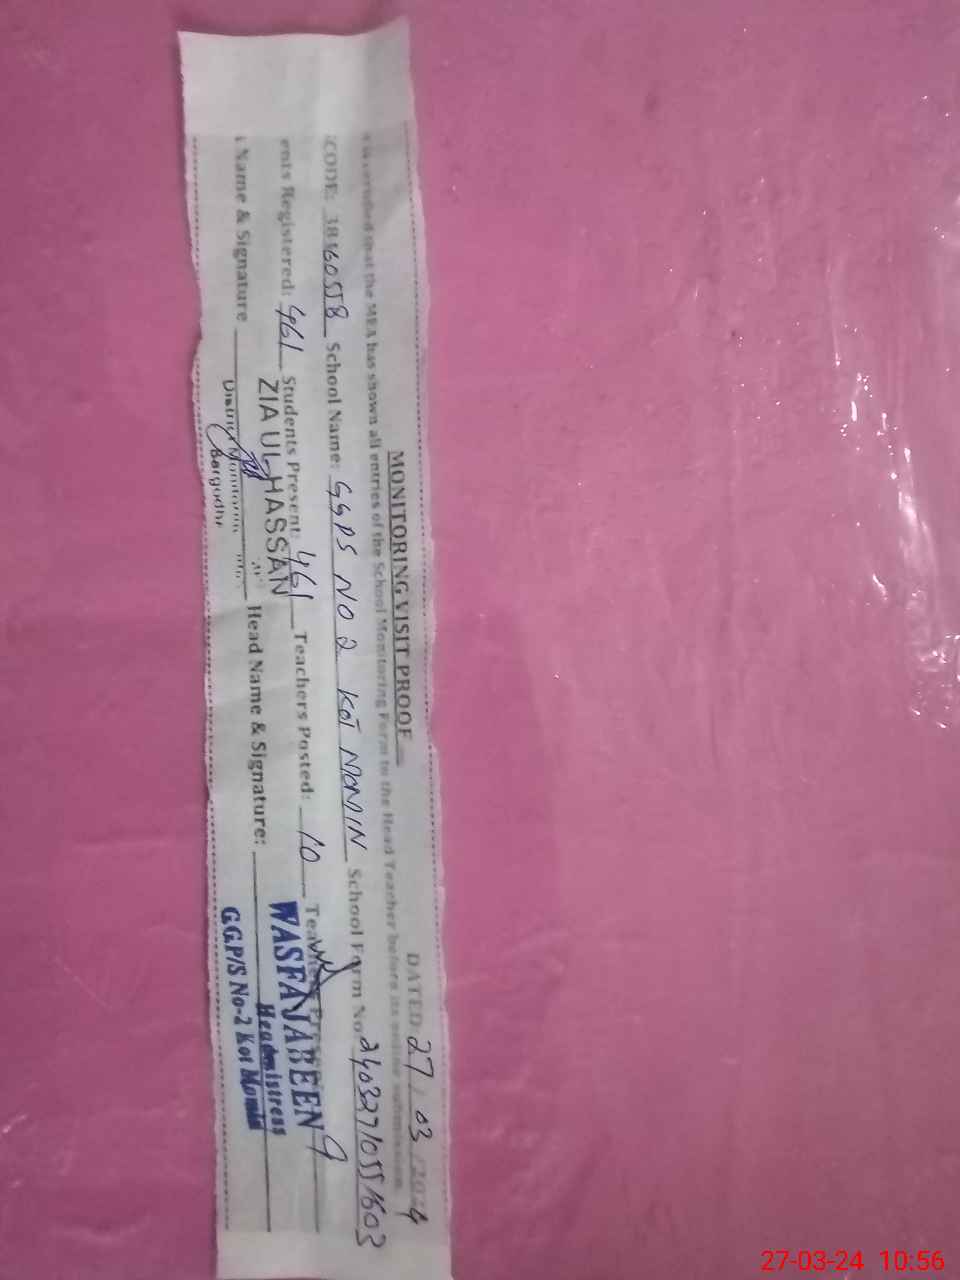 MONITORING VISIT PROOF
DATED 27/03/2024
that the MEA has shown all entries of the School Monitoring Form to the Head Teacher before its online submission.
CODE: 38160558 School Name: GGPS NO 2 KOT MOMIN School Form No 24032710551603
ents Registered: 461 Students Present: 461 Teachers Posted: 10 Teachers Present 9
Name & Signature Head Name & Signature:
ZIA UL HASSAN
District Monitoring
Sargodha
WASFA JABEEN
Headmistress
G.G.P/S No-2 Kot Momin
27-03-24 10:56